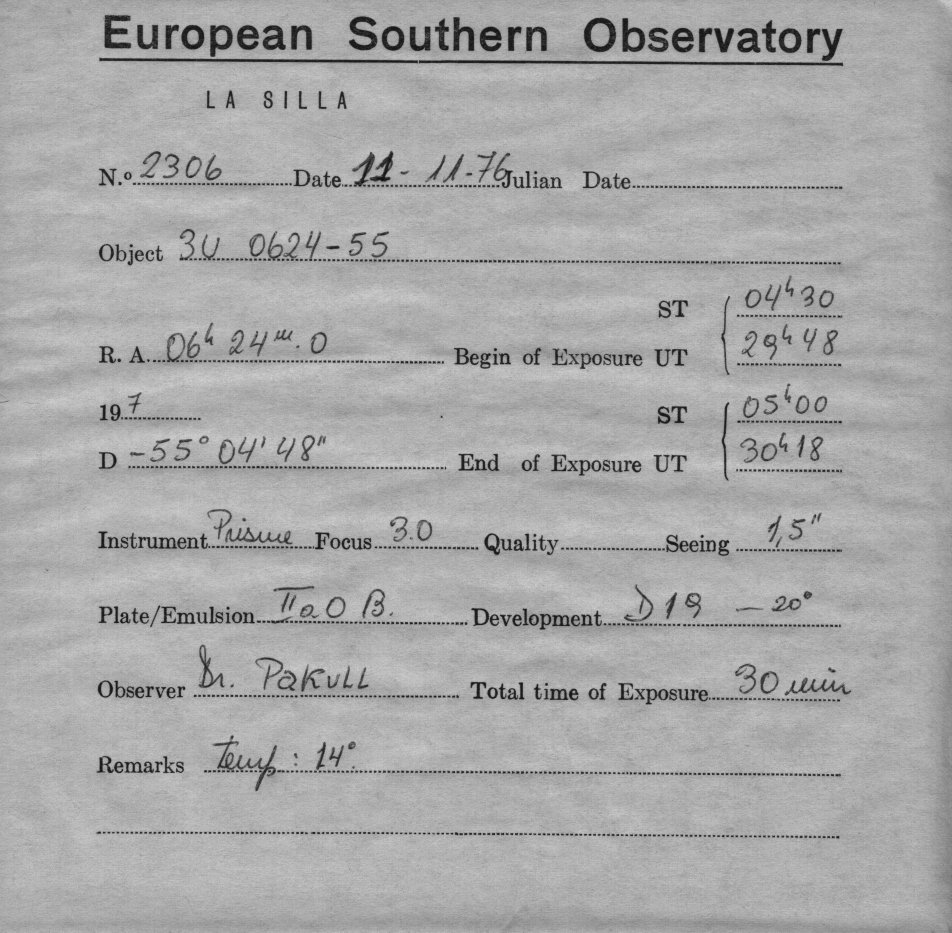 European Southern Observatory
LA SILLA
N.º 2306 Date 11-11-76 Julian Date
Object 3U 0624-55
ST 04h30
R. A. 06h 24m.0 Begin of Exposure UT 29h48
197 ST 05h00
D -55° 04' 48" End of Exposure UT 30h18
Instrument Prisme Focus 3.0 Quality Seeing 1,5"
Plate/Emulsion IIaO B. Development D19 - 20°
Observer Dr. Pakull Total time of Exposure 30 min
Remarks temp: 14°.